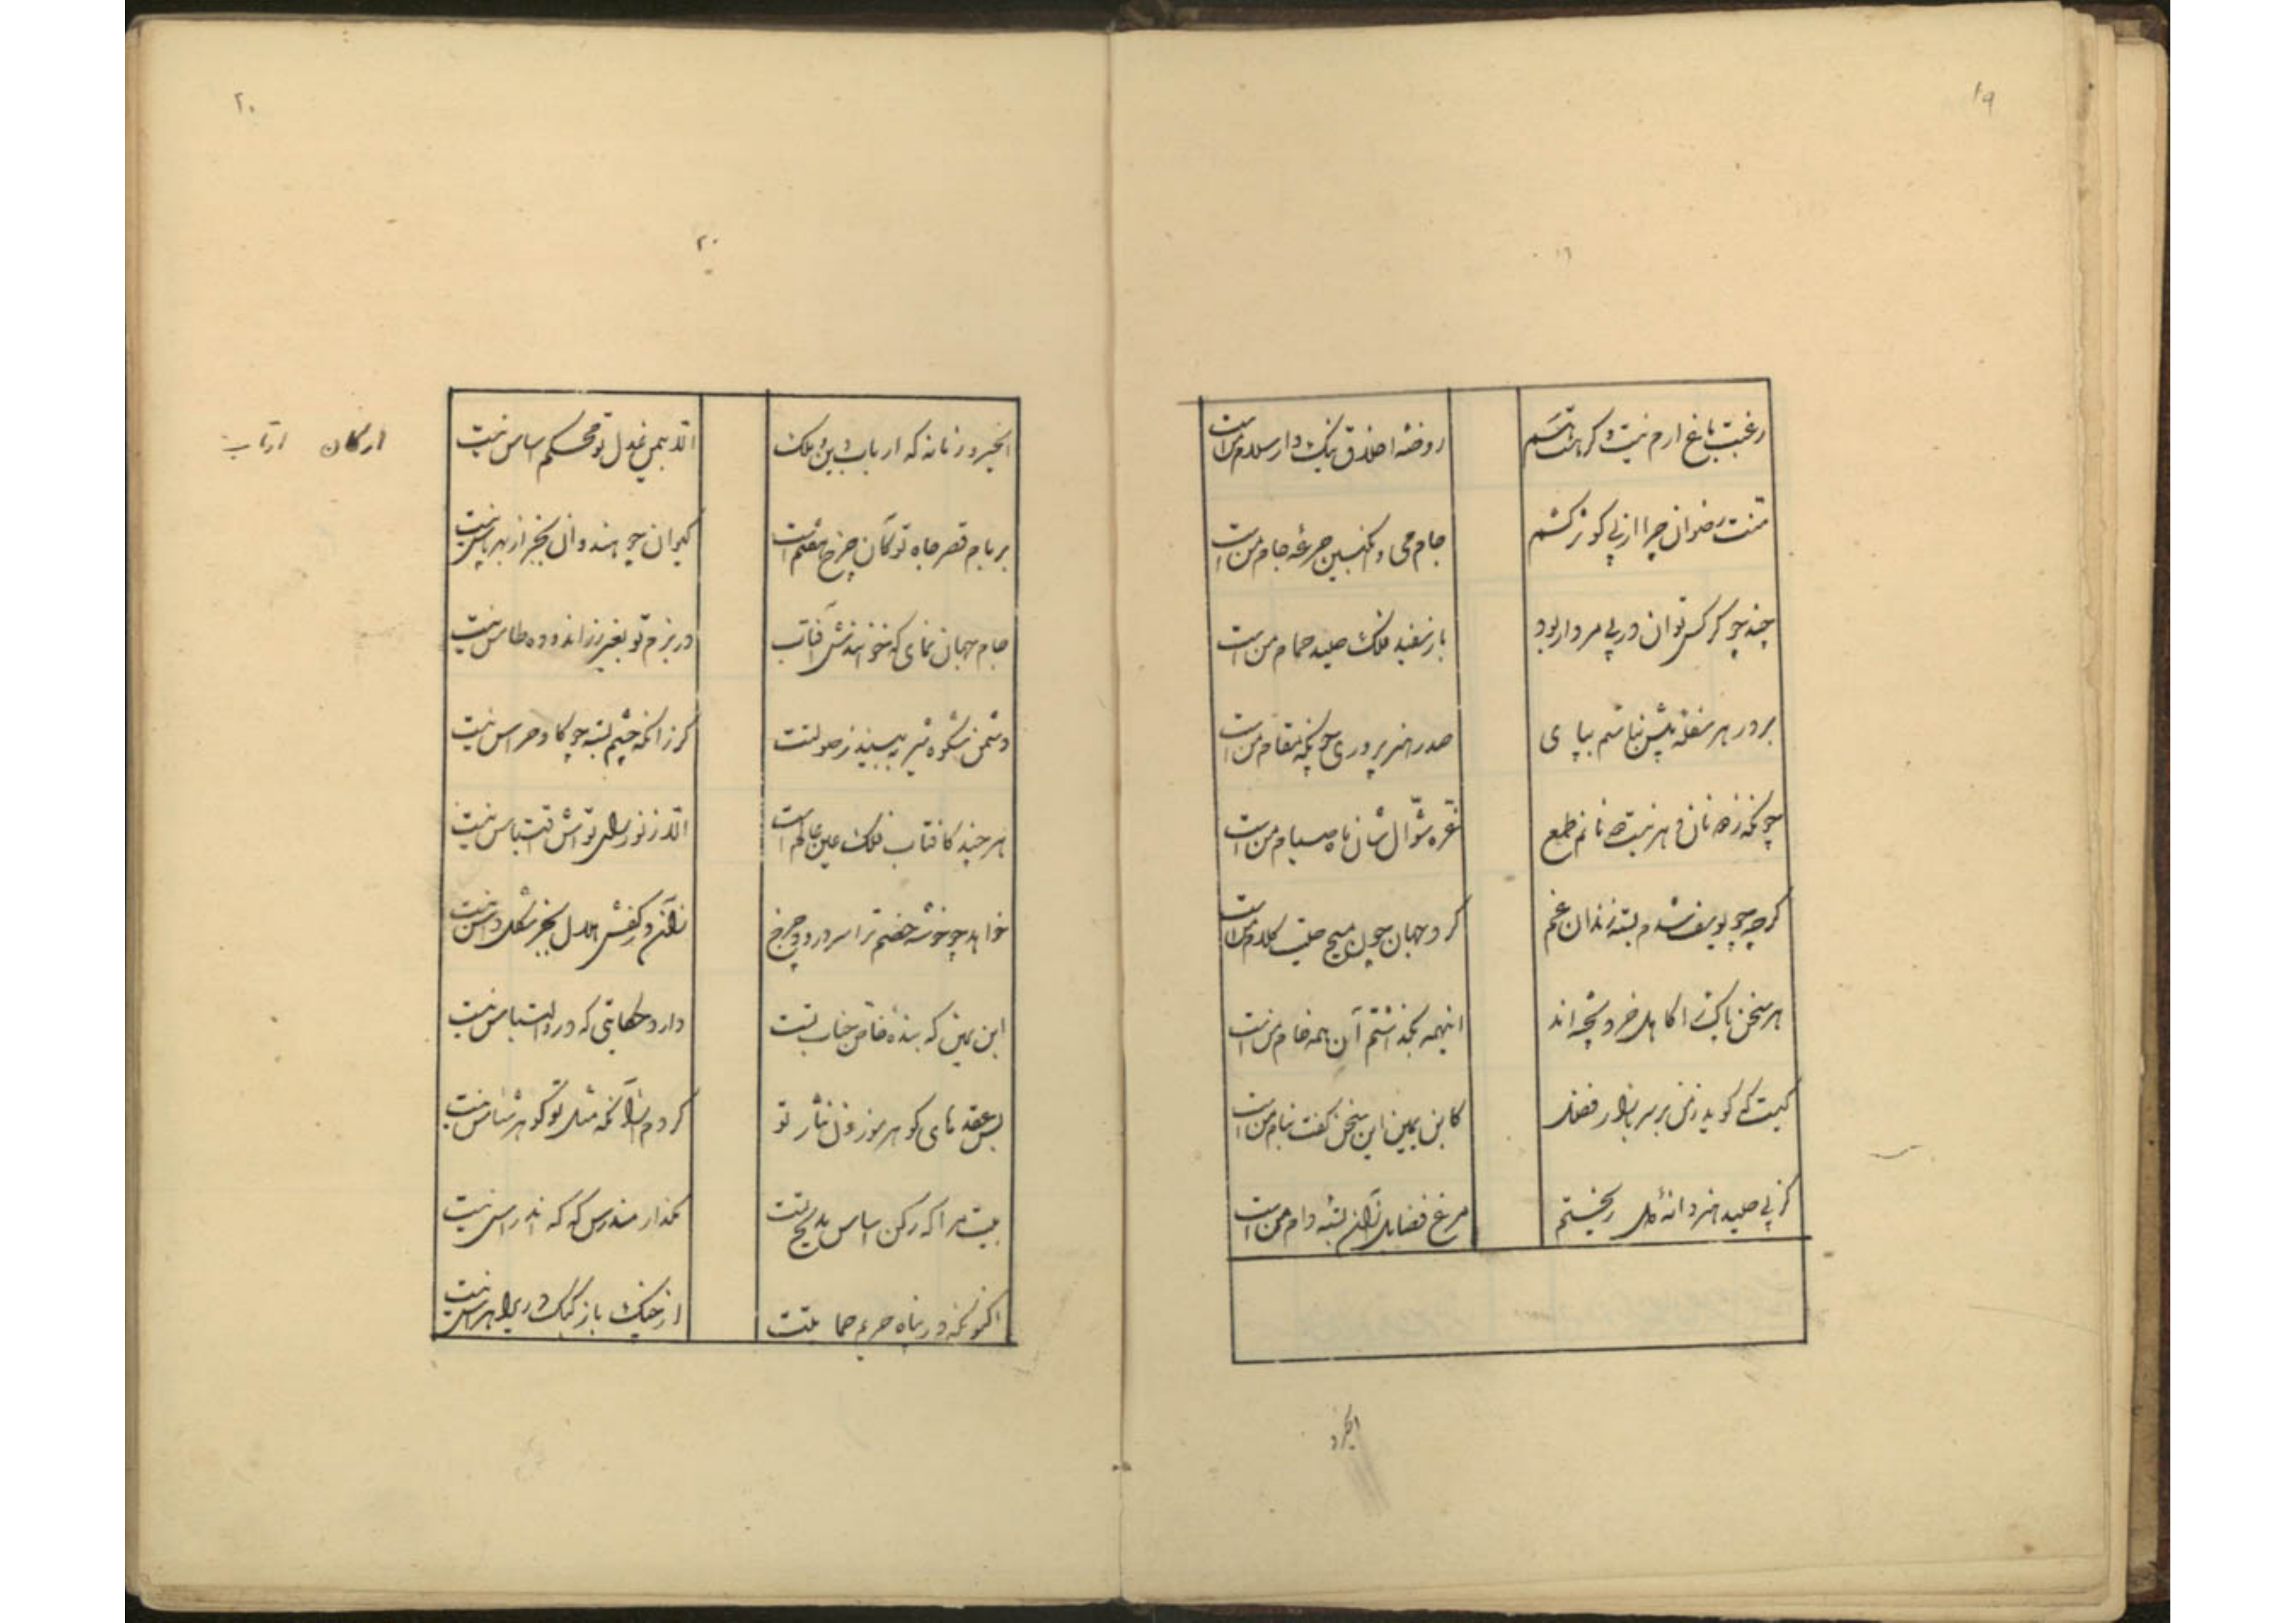 ۱۹
رغبت باغ ارم نیست و کر باشدم
روضهٔ اخلاق نیک دار سلام من است
منت رضوان چرا از پی کوثر کشم
جام می و انکبین جرعهٔ جام من است
چند چو کرکس توان در پی مردار بود
باز سفید فلک صید حمام من است
بر در هر سفله پیش نباشم بپای
صدر هنر پروری چونکه مقام من است
چونکه ز دونان دهر نیست نانم طمع
غره شوال شان ماه صیام من است
کرچه چو یوسف شدم بسته زندان غم
کرد جهان چون مسیح صیت کلام من است
هر سخن پاک را کاهل خرد پخته اند
اینهمه بکذشتم آن همه خام من است
کیست که کوید ز من بر سر بازار فضل
کابن یمین این سخن کفت بنام من است
کز پی صید هنر دانهٔ دل ریختم
مرغ فضایل از آن بسته دام من است
۲۰
۲۰
ای خسرو زمانه که ارباب دین و ملک
الا بیمن عدل تو محکم اساس نیست
ارکان
بر بام قصر جاه تو کان چرخ هفتم است
کیوان چو هندوان بجز از بهر پاس نیست
جام جهان نمای که خوانندش آفتاب
در بزم تو بغیر زر اندوده طاس نیست
دشمن شکوه شیر ببیند ز صولتت
کر زانکه چشم بسته چو کاو خراس نیست
هر چند کافتاب فلک عین عالم است
الا ز نور رای تواش اقتباس نیست
خواهد چو خوشه خصم ترا سر درود چرخ
زان در کفش هلال بجز شکل داس نیست
ابن یمین که بنده خاص جناب تست
دارد حکایتی که در او التباس نیست
بس عقدهای کوهر موزون نثار تو
کردم از آنکه مثل تو کوهر شناس نیست
بیت مرا که رکن اساس مدیح تست
مکذار مندرس که که اندراس نیست
اکنونکه در پناه حریم حمایتت
از جنک باز کبک دری را هراس نیست